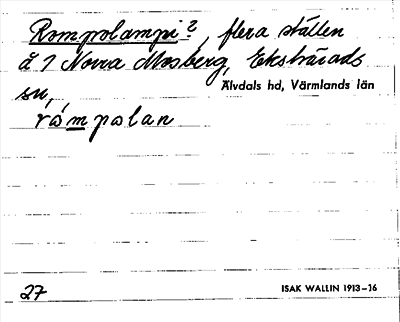 Rompolampi?, flera ställen
å 7 Norra Mosberg, Ekshärads
sn, Älvdals hd, Värmlands län
rómpolan
27 ISAK WALLIN 1913–16